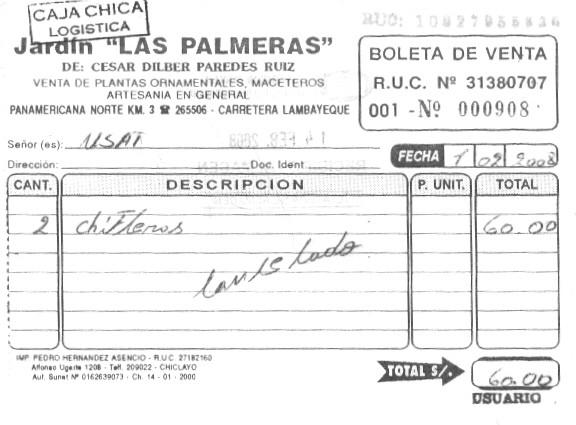 CAJA CHICA
LOGISTICA
RUC: 10927955826
Jardín "LAS PALMERAS"
DE: CESAR DILBER PAREDES RUIZ
VENTA DE PLANTAS ORNAMENTALES, MACETEROS
ARTESANIA EN GENERAL
PANAMERICANA NORTE KM. 3 ☎ 265506 - CARRETERA LAMBAYEQUE
BOLETA DE VENTA
R.U.C. Nº 31380707
001 - Nº 000908
Señor (es): USAT
14 FEB. 2008
Dirección: Doc. Ident.
FECHA 1 02 2008
CANT. DESCRIPCION P. UNIT. TOTAL
2 chifleros 60.00
cancelado
IMP PEDRO HERNANDEZ ASENCIO - R.U.C. 27182160
Alfonso Ugarte 1208 - Telf. 209022 - CHICLAYO
Aut. Sunat Nº 0162639073 - Ch. 14 - 01 - 2000
TOTAL S/. 60.00
USUARIO